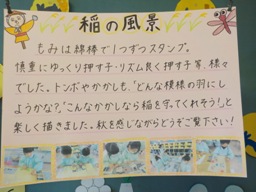 稲の風景
もみは綿棒で1つずつスタンプ。
慎重にゆっくり押す子・リズム良く押す子等、様々
でした。トンボやかかしも、"どんな模様の羽にし
ようかな?""こんなかかしなら稲を守ってくれそう!"と
楽しく描きました。秋を感じながらどうぞご覧下さい!